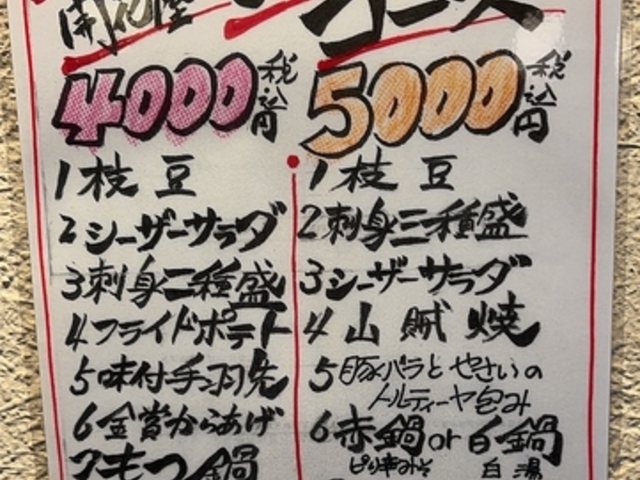 コース
4000 税込円
1 枝豆
2 シーザーサラダ
3 刺身二種盛
4 フライドポテト
5 味付手羽先
6 金賞からあげ
7 もつ鍋
5000 税込円
1 枝豆
2 刺身三種盛
3 シーザーサラダ
4 山賊焼
5 豚バラとやさいの
トルティーヤ包み
6 赤鍋or白鍋
ピリ辛みそ 白湯